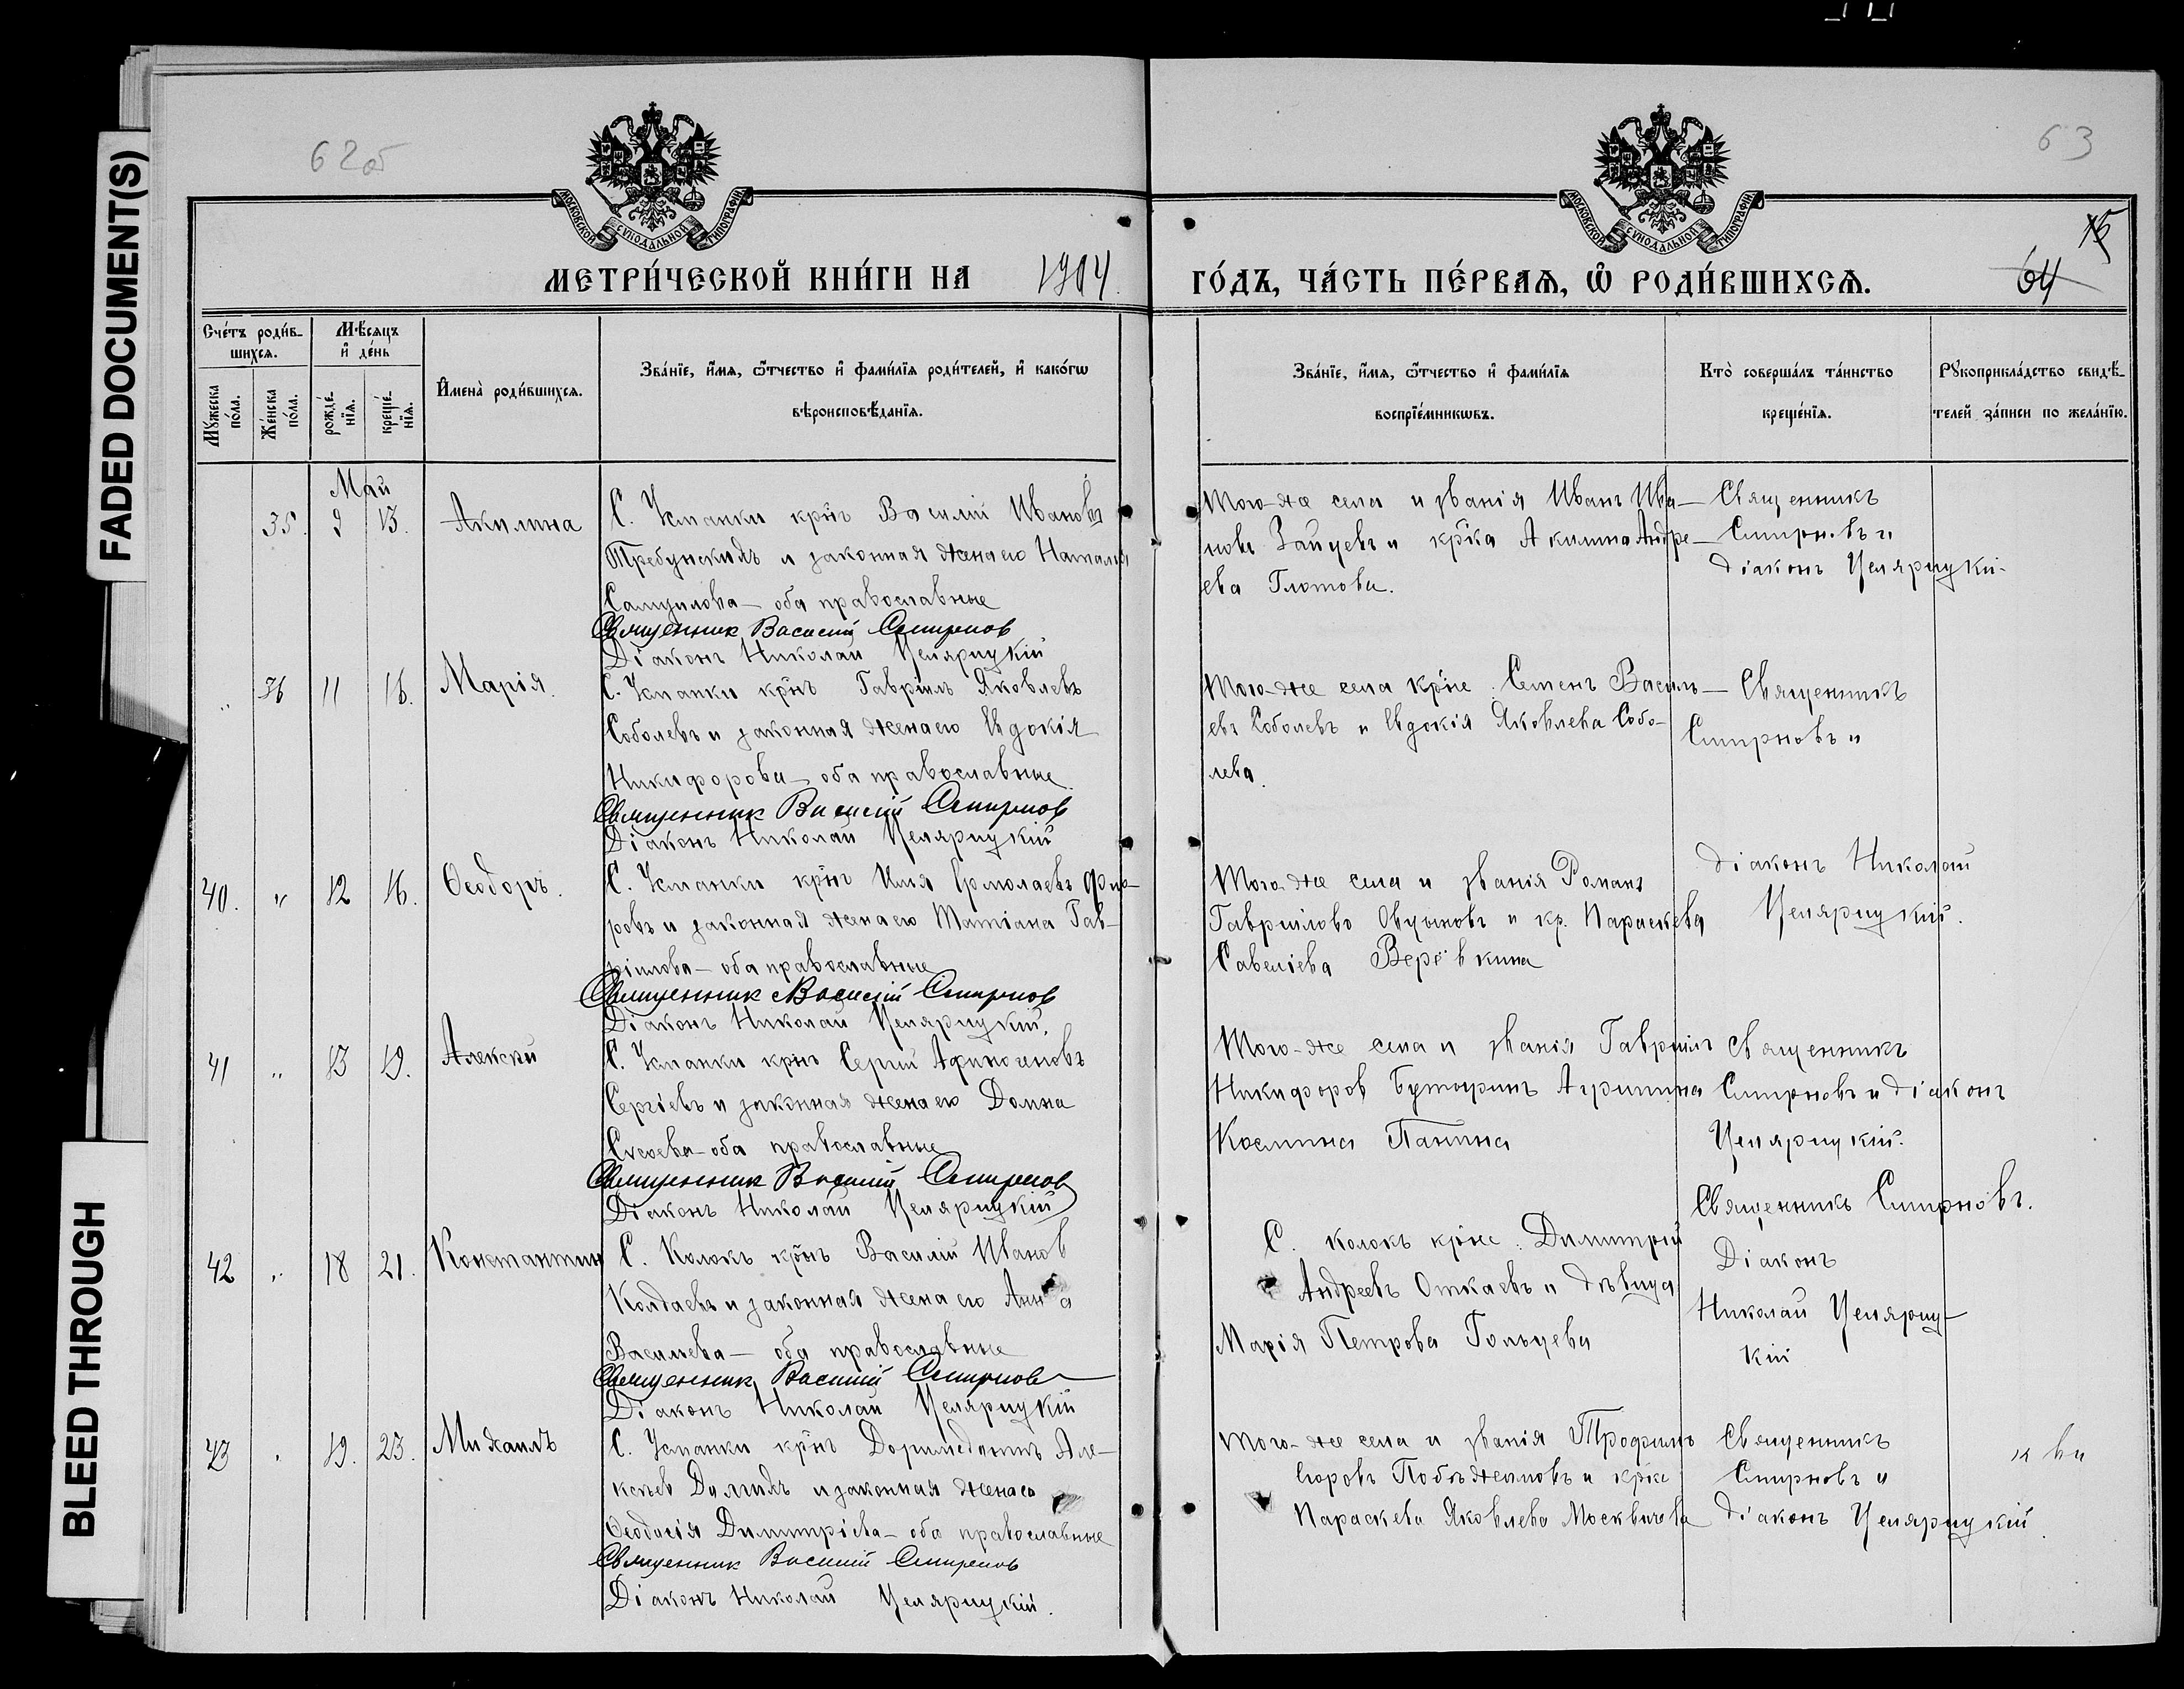 FADED DOCUMENT(S)
BLEED THROUGH
62об
63
75
64
МОСКОВСКОЙ СѴНОДАЛЬНОЙ ТИПОГРАФІИ.
МОСКОВСКОЙ СѴНОДАЛЬНОЙ ТИПОГРАФІИ.
МЕТРИ́ЧЕСКОЙ КНИ́ГИ НА 1904 ГО́ДЪ, ЧА́СТЬ ПЕ́РВАѦ, Ѡ҆ РОДИ́ВШИХСѦ.
Сче́тъ роди́в-
шихсѧ.
Мꙋ́жеска
по́ла.
Же́нска
по́ла.
Мѣ́сѧцъ
и҆ де́нь
рожде́-
нїѧ.
креще́-
нїѧ.
И҆мена̀ роди́вшихсѧ.
Зва́нїе, и҆́мѧ, ѻ҆́тчество и҆ фами́лїѧ роди́телей, и҆ како́гѡ
вѣроисповѣ́данїѧ.
Зва́нїе, и҆́мѧ, ѻ҆́тчество и҆ фами́лїѧ
воспрїе́мникѡвъ.
Кто̀ соверша́лъ та́инство
креще́нїѧ.
Рꙋкоприкла́дство свидѣ́-
телей за́писи по жела́нїю.
Май
35. 9 13. Акилина
С. Усманки кр̃нъ Василій Ивановъ
Требунскихъ и законная жена его Наталія
Самуилова – оба православные
Священник Василій Смирнов
Діаконъ Николай Целярицкій
Того-же села и званія Иванъ Ива-
новъ Зайцевъ и кр̃ка Акилина Андре-
ева Глотова.
Священникъ
Смирновъ и
діаконъ Целярицкій
„ 36 11 16. Марія.
С. Усманки кр̃нъ Гавріилъ Яковлевъ
Соболевъ и законная жена его Евдокія
Никифорова – оба православные.
Священник Василій Смирнов
Діаконъ Николай Целярицкій
Того-же села кр̃не Семенъ Василь-
евъ Соболевъ и Евдокія Яковлева Собо-
лева.
Священникъ
Смирновъ и
діаконъ Николай
Целярицкій.
40. „ 12 16. Ѳеодоръ.
С. Усманки кр̃нъ Илія Ермолаевъ Фло-
ровъ и законная жена его Татіана Гав-
ріилова – оба православные
Священник Василій Смирнов
Діаконъ Николай Целярицкій.
Того-же села и званія Романъ
Гавриловъ Овцыновъ и кр. Параскева
Савеліева Верёвкина
41 „ 13 19. Алексѣй
С. Усманки кр̃нъ Сергій Афиногеновъ
Сергіевъ и законная жена его Домна
Сысоева – оба православные
Священник Василій Смирнов
Діаконъ Николай Целярицкій
Того-же села и званія Гавріилъ
Никифоров Бутыринъ Агрипина
Космина Панина
Священникъ
Смирновъ и діаконъ
Целярицкій.
42 „ 18 21. Константин
С. Колокъ кр̃нъ Василій Иванов
Колдаевъ и законная жена его Анна
Васильева – оба православные
Священник Василій Смирнов
Діаконъ Николай Целярицкій
С. Колокъ кр̃не Димитрій
Андреевъ Откаевъ и дѣвица
Марія Петрова Гольцева
Священникъ Смирновъ.
Діаконъ
Николай Целяриц-
кій
43 „ 19. 23. Михаилъ
С. Усманки кр̃нъ Доримедонтъ Але-
ксѣев Долгихъ и законная жена его
Ѳеодосія Димитріева – оба православные
Священник Василій Смирнов
Діаконъ Николай Целярицкій.
Того-же села и званія Трофимъ
Егоровъ Побѣжимовъ и кр̃ка
Параскева Яковлева Москвичева
Священникъ
Смирновъ и
діаконъ Целярицкій.